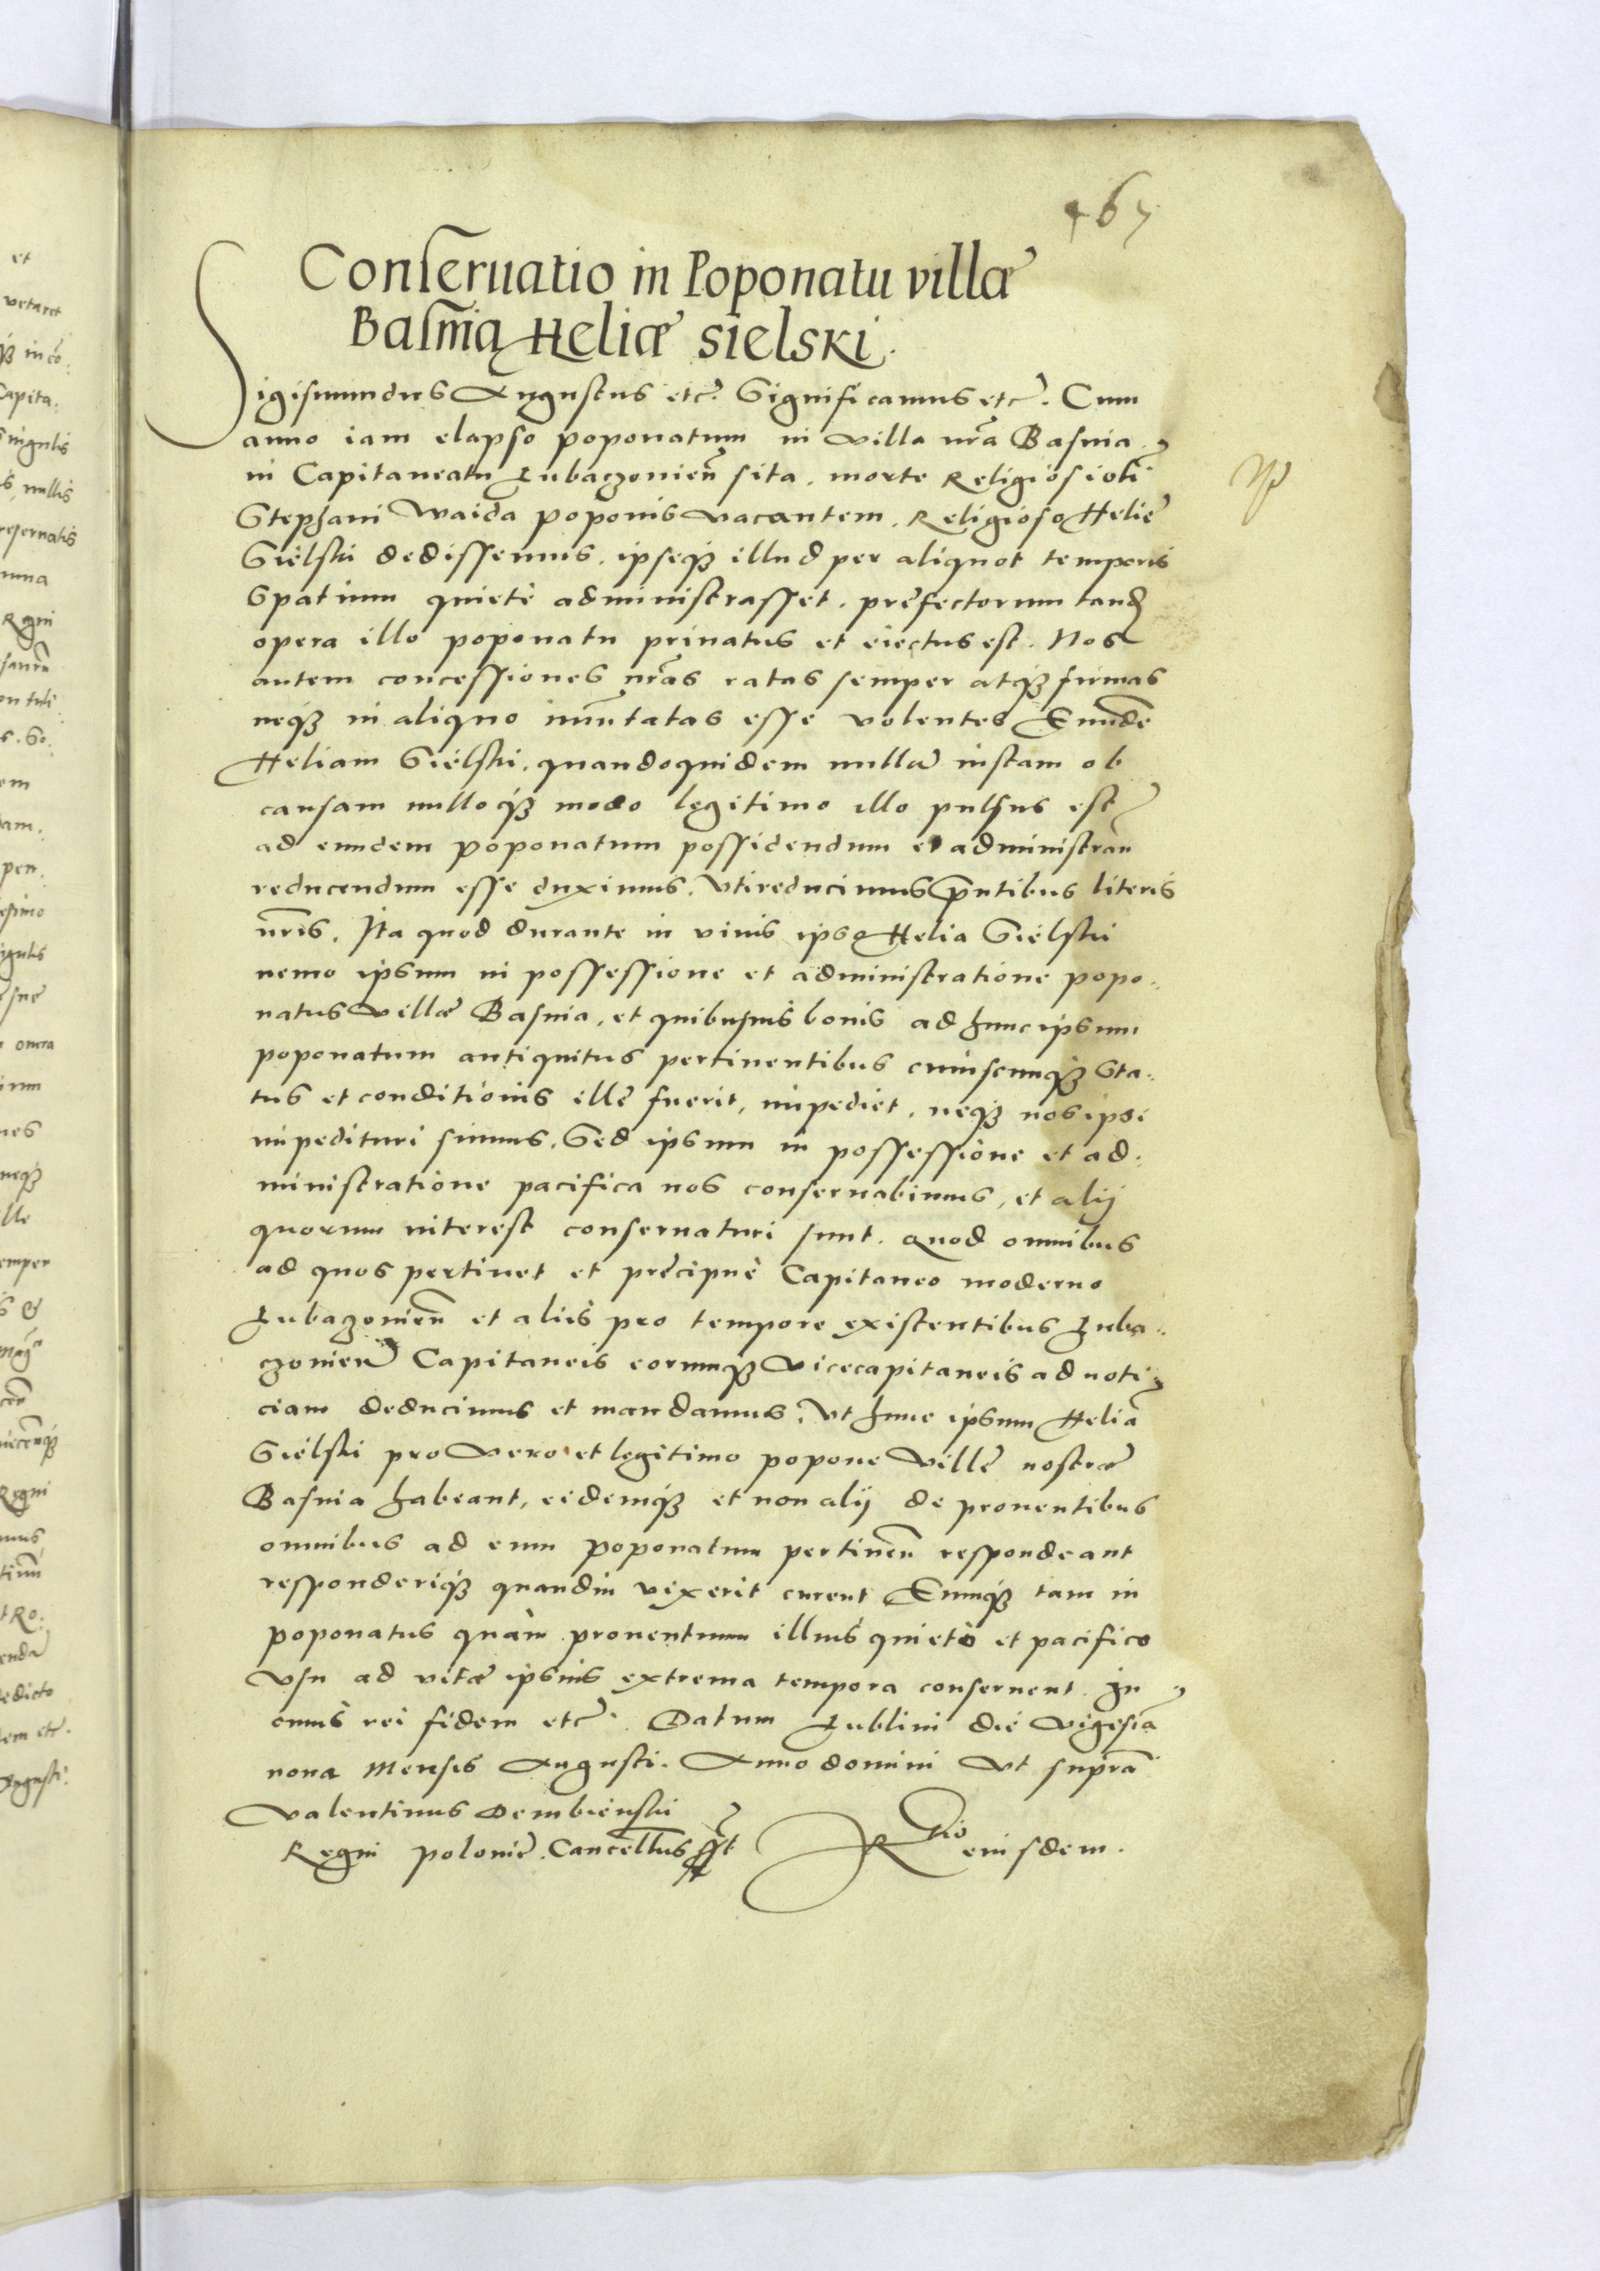 467
Conseruatio in Poponatu villæ
Basnia Heliæ Sielski.
Sigismundus Augustus etc. Significamus etc. Cum
anno iam elapso poponatum in villa nrã Basnia
in Capitaneatu Lubaczouień sita, morte Religiosi olĩ
Stephani Waida poponis vacantem, Religioso Helię
Siełski dedissemus, ipseqȝ illud per aliquot temporis
spatium quietè administrasset, pręfectorum tandẽ
opera illo poponatu priuatus et eiectus est. Nos
autem concessiones nrãs ratas semper atqȝ firmas
neqȝ in aliquo imũtatas esse volentes Eundẽ
Heliam Siełski, quandoquidem nullã iustam ob
causam nulloqȝ modo legitimo illo pulsus est
ad eundem poponatum possidendum et administrań
reducendum esse duximus, vti reducimus p̃ntibus literis
nr̃is. Ita quod durante in viuis ipso Helia Siełski
nemo ipsum in possessione et administratione popo.
natus villæ Basnia, et quibusuis bonis ad hunc ipsum
poponatum antiquitus pertinentibus cuiuscumqȝ sta.
tus et conditionis ille fuerit, impediet, neqȝ nos ipsi
impedituri sumus. Sed ipsum in possessione et ad.
ministratione pacifica nos conseruabimus, et alij
quorum interest conseruaturi sunt. Quod omnibus
ad quos pertinet et pręcipuè Capitaneo moderno
Lubaczouień et aliis pro tempore existentibus Luba.
czouień Capitaneis eorumqȝ Vicecapitaneis ad noti
ciam deducimus et mandamus, Vt hunc ipsum Heliã
Siełski pro vero et legitimo popone villę nostræ
Basnia habeant, eidemqȝ et non alij de prouentibus
omnibus ad eum poponatum pertineń respondeant
responderiqȝ quandiu vixerit curent Eumqȝ tam in
poponatus quàm prouentuum illius quieto et pacifico
vsu ad vitæ ipsius extrema tempora conseruent. In
cuius rei fidem etc. Datum Lublini die vigesia
nona Mensis Augusti. Anno domini Vt supra
Valentinus Dembienski
Regni Polonię Cancellus sst
Rtio eiusdem.